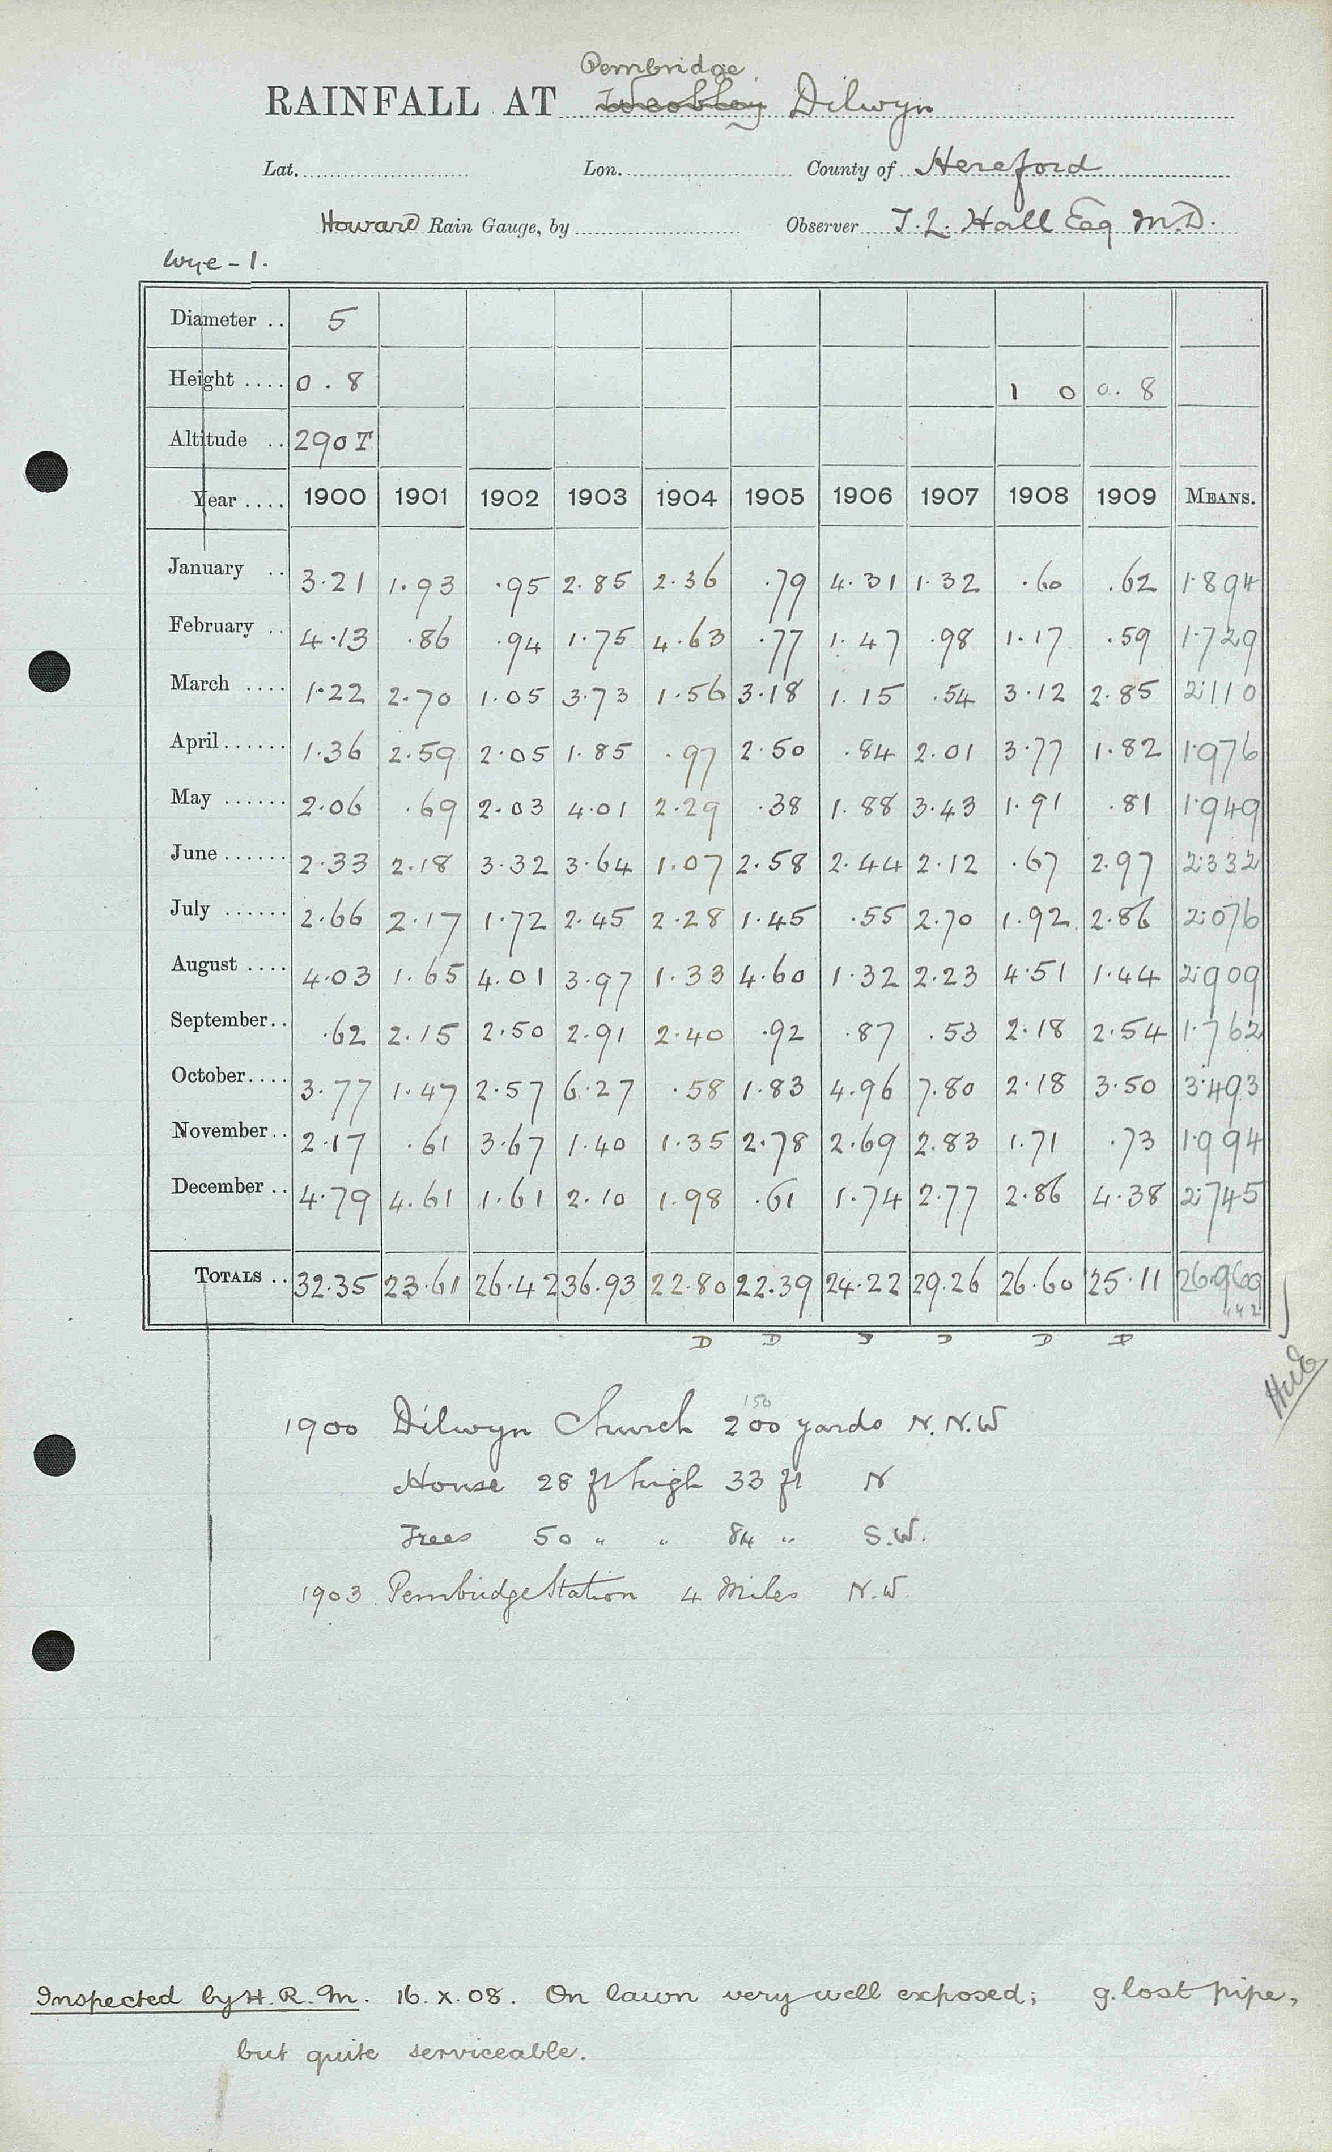 Pembridge
RAINFALL AT Weobley Dilwyn
Lat. Lon. County of Hereford
Howard Rain Gauge, by Observer T. L. Hall Esq M.D.
Wye - 1.
Diameter .. 5
Height .... 0 . 8 1 0 0 . 8
Altitude .. 290 T
Year .... 1900 1901 1902 1903 1904 1905 1906 1907 1908 1909 MEANS.
January .. 3.21 1.93 .95 2.85 2.36 .79 4.31 1.32 .60 .62 1.894
February .. 4.13 .86 .94 1.75 4.63 .77 1.47 .98 1.17 .59 1.729
March .... 1.22 2.70 1.05 3.73 1.56 3.18 1.15 .54 3.12 2.85 2.110
April ...... 1.36 2.59 2.05 1.85 .97 2.50 .84 2.01 3.77 1.82 1.976
May ...... 2.06 .69 2.03 4.01 2.29 .38 1.88 3.43 1.91 .81 1.949
June ...... 2.33 2.18 3.32 3.64 1.07 2.58 2.44 2.12 .67 2.97 2.332
July ...... 2.66 2.17 1.72 2.45 2.28 1.45 .55 2.70 1.92 2.86 2.076
August .... 4.03 1.65 4.01 3.97 1.33 4.60 1.32 2.23 4.51 1.44 2.909
September .. .62 2.15 2.50 2.91 2.40 .92 .87 .53 2.18 2.54 1.762
October .... 3.77 1.47 2.57 6.27 .58 1.83 4.96 7.80 2.18 3.50 3.493
November .. 2.17 .61 3.67 1.40 1.35 2.78 2.69 2.83 1.71 .73 1.994
December .. 4.79 4.61 1.61 2.10 1.98 .61 1.74 2.77 2.86 4.38 2.745
TOTALS .. 32.35 23.61 26.42 36.93 22.80 22.39 24.22 29.26 26.60 25.11 26.969
D D D D D D
150
1900 Dilwyn Church 200 yards N.N.W
House 28 ft high 33 ft N
Trees 50 " " 84 " S.W.
1903 Pembridge Station 4 Miles N.W.
Inspected by H.R.M. 16.X.08. On lawn very well exposed; g. lost pipe,
but quite serviceable.